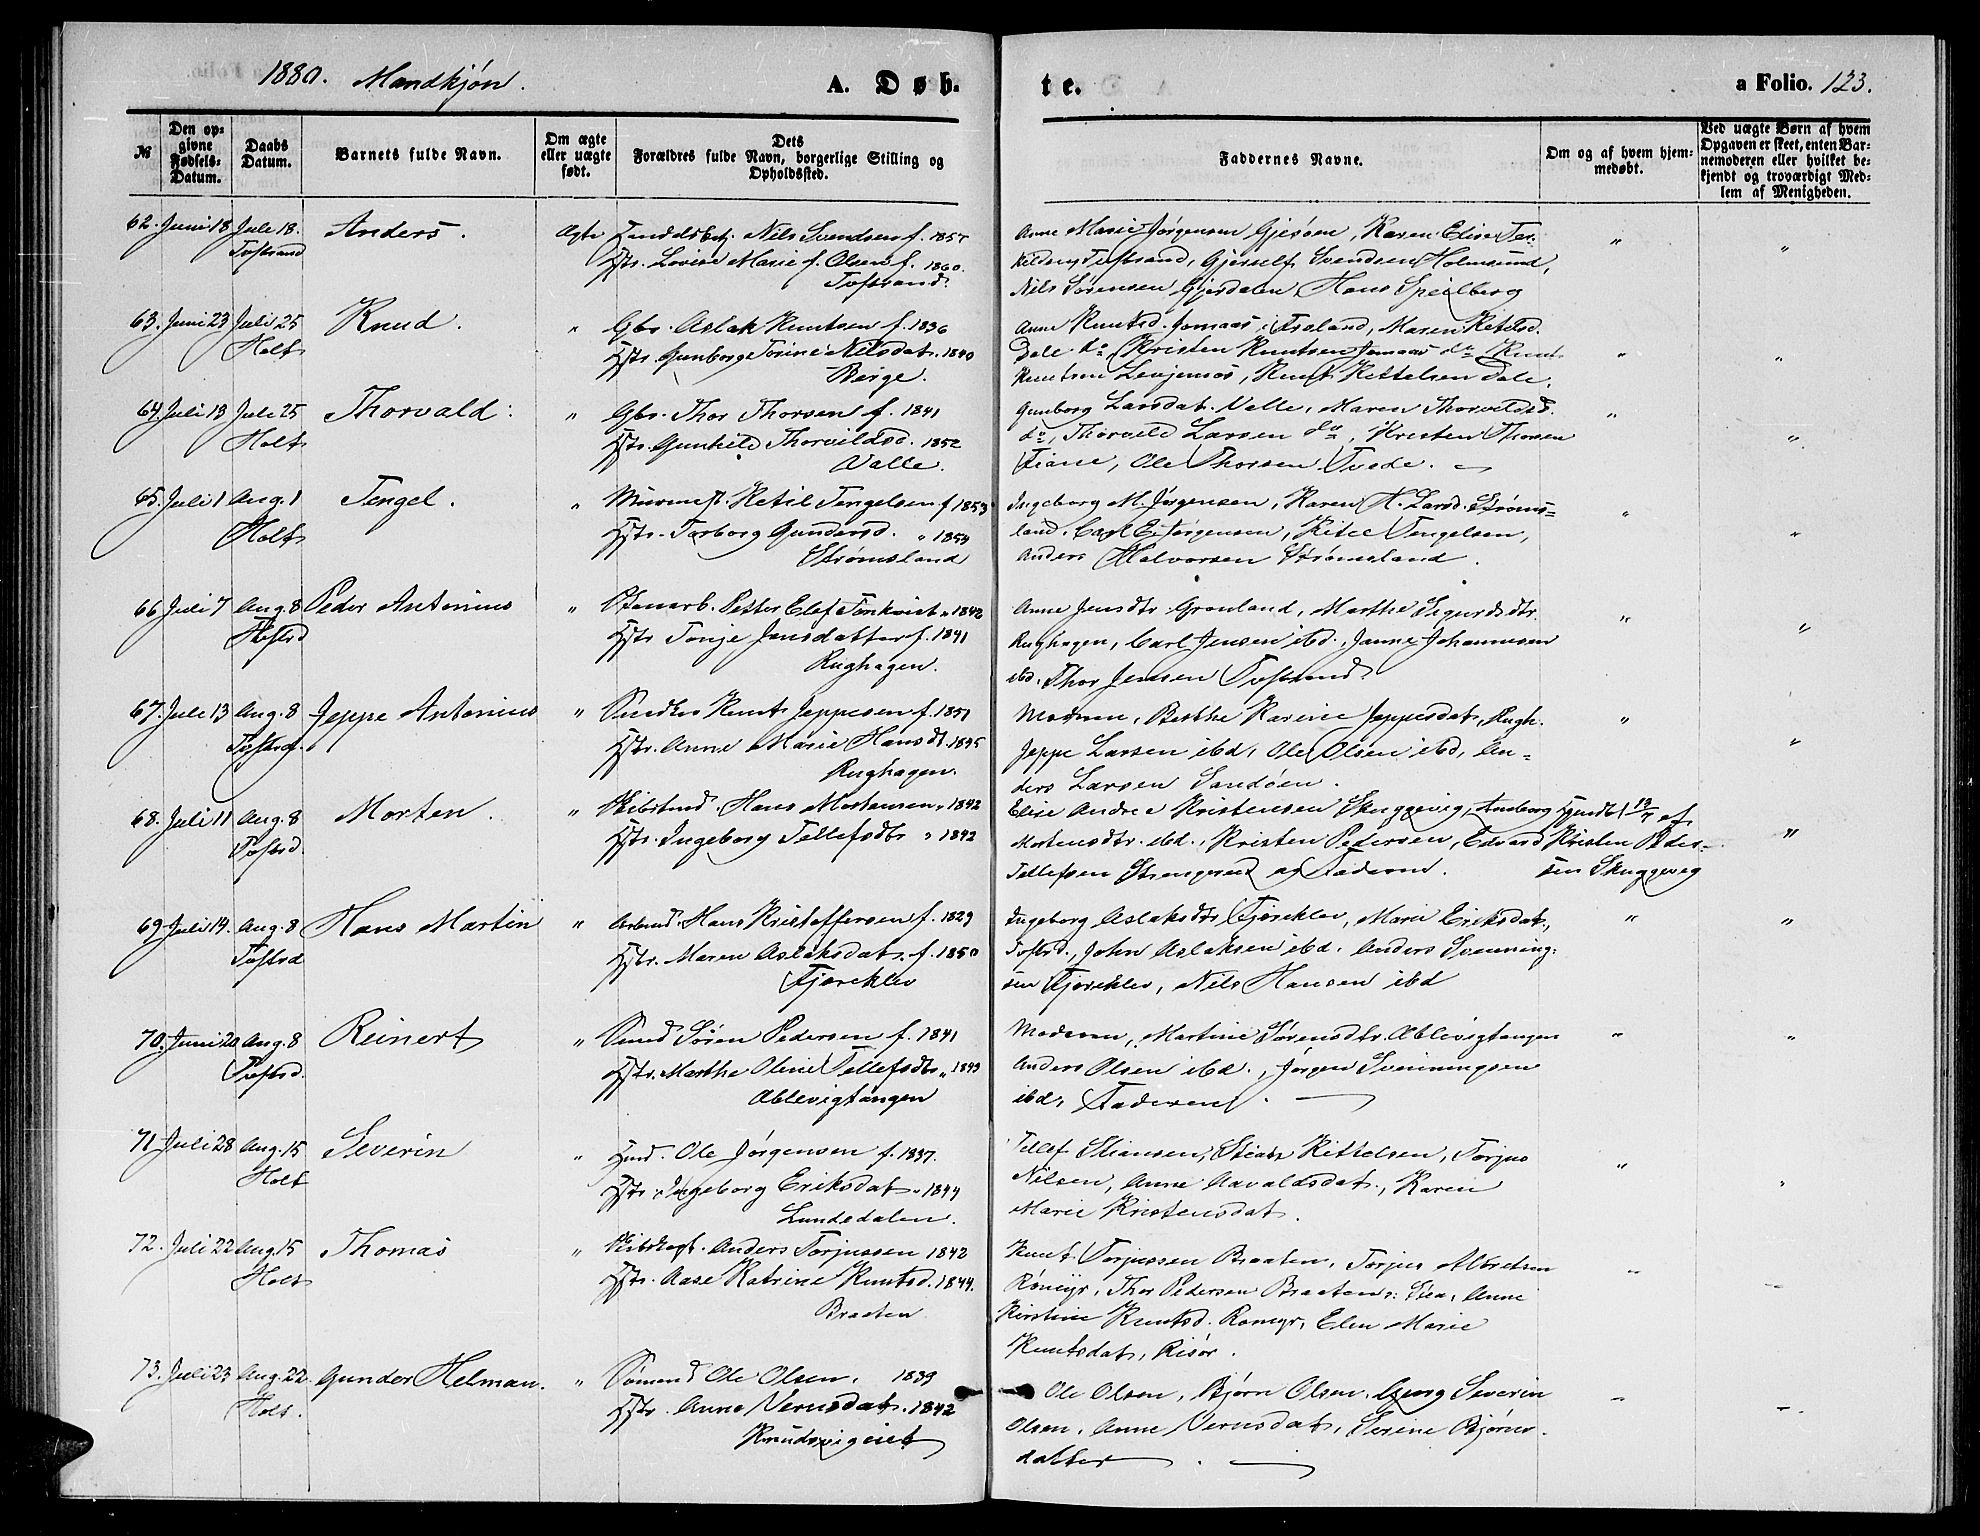 1880. Mandkjøn. A. Døb-
te. a Folio. 123.
№
Den op-
givne
Fødsels-
Datum.
Daabs
Datum.
Barnets fulde Navn.
Om ægte
eller uægte
født.
Dets
Forældres fulde Navn, borgerlige Stilling og
Opholdssted.
Faddernes Navne.
Om og af hvem hjem-
medøbt.
Ved uægte Børn af hvem
Opgaven er skeet, enten Bar-
nemoderen eller hvilket be-
kjendt og troværdigt Med-
lem af Menigheden.
62. Juni 18 Juli 18. Anders. Ægte Nils Svendsen f. 1857
Tvedestrand
Hstr. Lovise Marie f. Olsen f. 1860.
Anne Marie Jørgensen Gjesøen, Karen Elise Ter-
Svendsen Holmsund,
Nils Sørensen Gjerdalen, Hans Speilberg
63. Juni 23 Juli 25 Knud. " Gbr. Aslak Knutsen f. 1836
Holt Hstr. Gunborg Torine Nilsdat. 1840
Berge.
Anne Knutsd. Jomaas i Froland, Maren Ketilsd.
Dale do Kristen Knutsen Jomaas do Knut
Knutsen Knut Kittelsen Dale.
64. Juli 13 Juli 25 Thorvald. " Gbr. Thor Thorsen f. 1841
Holt Hstr. Gunhild Thorvildsd. 1852
Valle.
Gunborg Larsdat. Valle, Maren Thorvildsd.
do, Thorvild Larsen do, Kristen Thorsen
Fiane, Ole Thorsen Tvede.
65. Juli 1 Aug. 1 Tengel. " Murmest. Ketil Tengelsen f 1853
Holt Hstr. Torborg Gundersd. " 1854
Strømsland
Ingeborg M. Jørgensen, Karen A. Larsd. Strøms-
land, Carl E. Jørgensen, Kittel Tengelsen,
Anders Halvorsen Strømsland.
66 Juli 7 Aug. 8 Peder Antonius " Stenarb. Petter Elef " 1842
Hstr Tonje Jensdatter f. 1841
Rughagen.
Anne Jensdtr Grønland, Marthe Sigurdsdtr.
Rughagen, Carl Jensen ibd., Janne Johannesen
ibd. Thor Jensen
67. Juli 13 Aug. 8 Jeppe Antonius " Knut Jeppesen f. 1851
Hstr. Anne Marie Hansdt. 1845
Rughagen.
Moderen, Berthe Karine Jeppesdat, Rugh.
Jeppe Larsen ibd, Ole Olsen ibd, An-
ders Larsen Sandøen.
68. Juli 11 Aug. 8 Morten. " Hans Mortensen " 1842
Hstr. Ingeborg Tellefsdtr " 1842
Elise Andrea Kristensen Skuggevig, Anborg
Mortensdtr. ibd., Kristen Pedersen, Edvard
Tellefsen Strengereid og Faderen.
Hjemdbt 13/7 af
Kristen Peder-
sen Skuggevig
69. Juli 14. Aug. 8 Hans Martin " Arbmd. Hans Kristoffersen f. 1829
Hstr. Maren Aslaksdat. f. 1850
Tjæreklev
Ingeborg Aslaksdtr Tjæreklev, Marie Eriksdat,
John Aslaksen ibd. Anders Svenning-
sen Tjæreklev, Nils Hansen ibd
70. Juni 20 Aug. 8 Reinert " Smed Søren Pedersen f. 1841
Hstr. Marthe Oline Tellefsdtr " 1843
Ablevigtangen
Moderen, Martine Sørensdtr. Ablevigtangen
Anders Olsen ibd., Jørgen Svenningsen
ibd, Faderen.
71 Juli 28 Aug. 15 Severin " Hmd. Ole Jørgensen f. 1837.
Holt Hstr. Ingeborg Eriksdat " 1844
Lundedalen.
Tellef Stiansen, Stian Kittelsen, Torjus
Nilsen, Anne Aavaldsdat., Karen
Marie Kristensdat.
72. Juli 22 Aug. 15 Thomas " Anders Torjussen 1842
Holt Hstr. Aase Katrine Knutsd. 1844.
Braaten
Knut Torjussen Braaten, Torjus Albretsen
Rømyr, Thor Pedersen Braaten, Anne
Kirstine Knutsd. Rømyr, Elen Marie
Knutsdat, Risør.
73. Juli 23 Aug. 22. Gunder Helman. " Sømand Ole Olsen, 1839
Holt. Hstr. Anne Vernsdat. 1842
Knudsvigeiet
Ole Olsen, Bjørn Olsen, Georg Severin
Olsen, Anne Vernsdat, Serine Bjørns-
datter